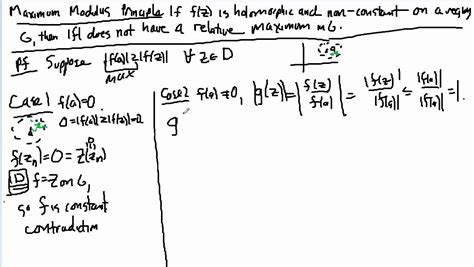 Maximum Modulus Principle If f(z) is holomorphic and non-constant on a region
G, then |f| does not have a relative maximum in G.
pf Suppose |f(a)| ≥ |f(z)| ∀ z ∈ D
max
Case 1 f(a)=0.
0=|f(a)|≥|f(z)|=0
f(zₙ)=0=Z(zₙ)
ID f=Z on G,
so f is constant
contradiction
Case 2 f(a)≠0, |g(z)|=|f(z)/f(a)| = |f(z)|/|f(a)| ≤ |f(a)|/|f(a)| = 1.
g